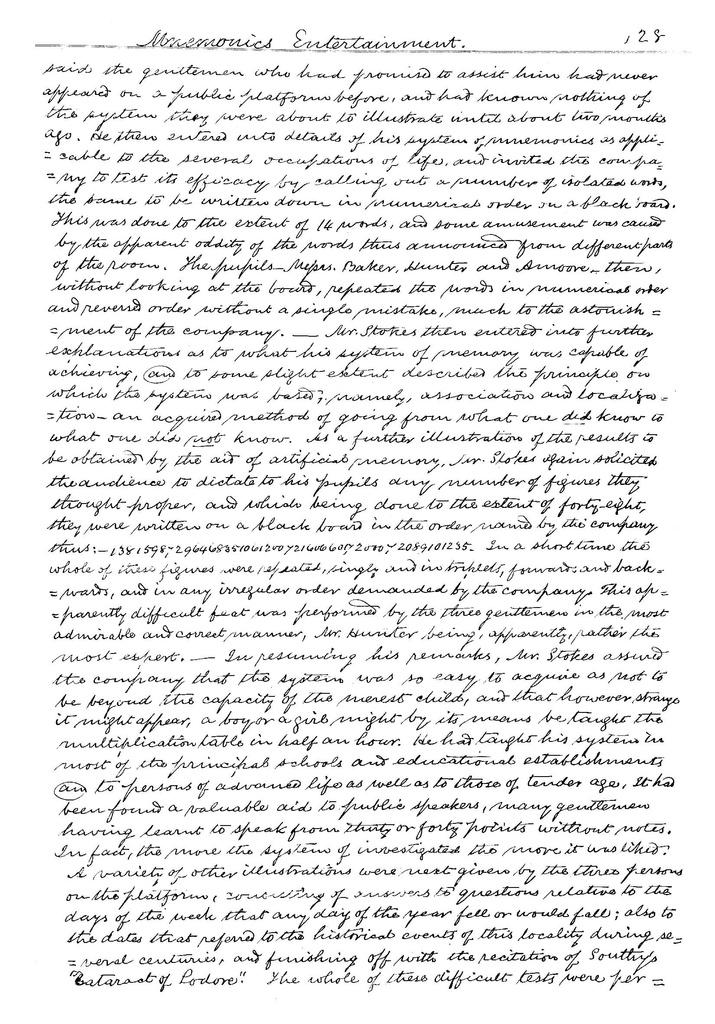 Mnemonics Entertainment. 128
said the gentlemen who had promised to assist him had never
appeared on a public platform before, and had known nothing of
the system they were about to illustrate until about two months
ago. He then entered into details of his system of mnemonics as appli=
=cable to the several occupations of life, and invited the compa=
=ny to test its efficacy by calling out a number of isolated words,
the same to be written down in numerical order on a black board.
This was done to the extent of 14 words, and some amusement was caused
by the apparent oddity of the words thus announced from different parts
of the room. The pupils – Messrs. Baker, Hunter and Amoore – then,
without looking at the board, repeated the words in numerical order
and reversed order without a single mistake, much to the astonish=
=ment of the company. — Mr. Stokes then entered into further
explanations as to what his system of memory was capable of
achieving, and to some slight extent described the principle on
which the system was based; namely, association and localiza=
=tion – an acquired method of going from what one did know to
what one did not know. As a further illustration of the results to
be obtained by the aid of artificial memory, Mr. Stokes again solicited
the audience to dictate to his pupils any number of figures they
thought proper, and which being done to the extent of forty-eight,
they were written on a black board in the order named by the company
thus:– In a short time the
whole of these figures were repeated, singly and in triplets, forwards and back=
=wards, and in any irregular order demanded by the company. This ap=
=parently difficult feat was performed by the three gentlemen in the most
admirable and correct manner, Mr. Hunter being, apparently, rather the
most expert. — In resuming his remarks, Mr. Stokes assured
the company that the system was so easy to acquire as not to
be beyond the capacity of the merest child, and that however strange
it might appear, a boy or a girl might by its means be taught the
multiplication table in half an hour. He had taught his system in
most of the principal schools and educational establishments
an to persons of advanced life as well as to those of tender age. It had
been found a valuable aid to public speakers, many gentlemen
having learnt to speak from thirty or forty points without notes.
In fact, the more the system of investigated the more it was liked.
A variety of other illustrations were next given by the three persons
on the platform, consisting of answers to questions relative to the
days of the week that any day of the year fell or would fall; also to
the dates that referred to the historical events of this locality during se=
=veral centuries, and finishing off with the recitation of Southy's
"Cataract of Lodore". The whole of these difficult tests were per=